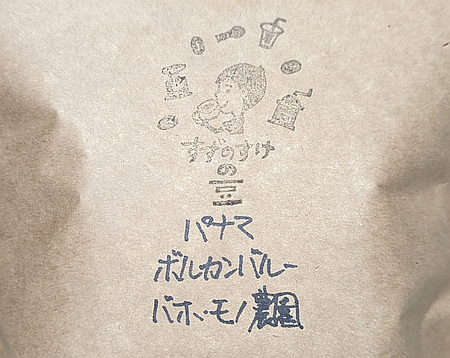 すずのすけ
の
豆
パナマ
ボルカンバルー
バホ・モノ農園